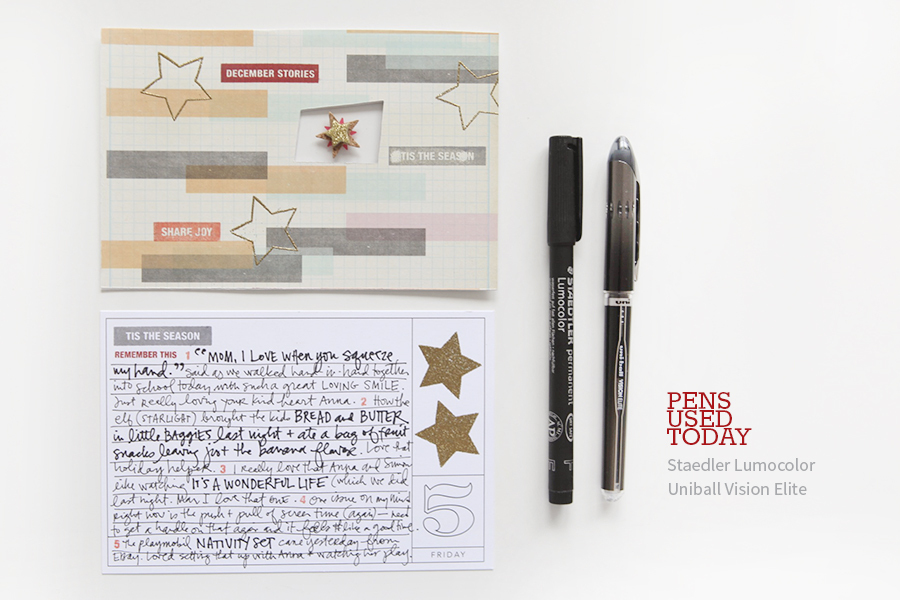 DECEMBER STORIES
'TIS THE SEASON
SHARE JOY
'TIS THE SEASON
REMEMBER THIS 1 "MOM, I LOVE WHEN you squeeze
my hand." Said as we walked hand in hand together
into school today, with such a great LOVING SMILE.
Just really loving your kid heart Anna. 2 How the
elf (STARLIGHT) brought the kid BREAD and BUTTER
in little BAGGIES last night + ate a bag of fruit
snacks leaving just the banana flavors. Love that
holiday helper. 3 I really love that Anna and Simon
like watching "IT'S A WONDERFUL LIFE" (which we did
last night. Man I love that one. 4 One issue on my mind
right now is the push + pull of screen time (again) — need
to get a handle on that again and it feels like a good time.
5 The playmobil NATIVITY SET came yesterday from
Ebay. Loved setting that up with Anna + watching her play.
5
FRIDAY
STAEDTLER
Lumocolor permanent
F
uni
uni-ball VISION ELITE
PENS
USED
TODAY
Staedler Lumocolor
Uniball Vision Elite